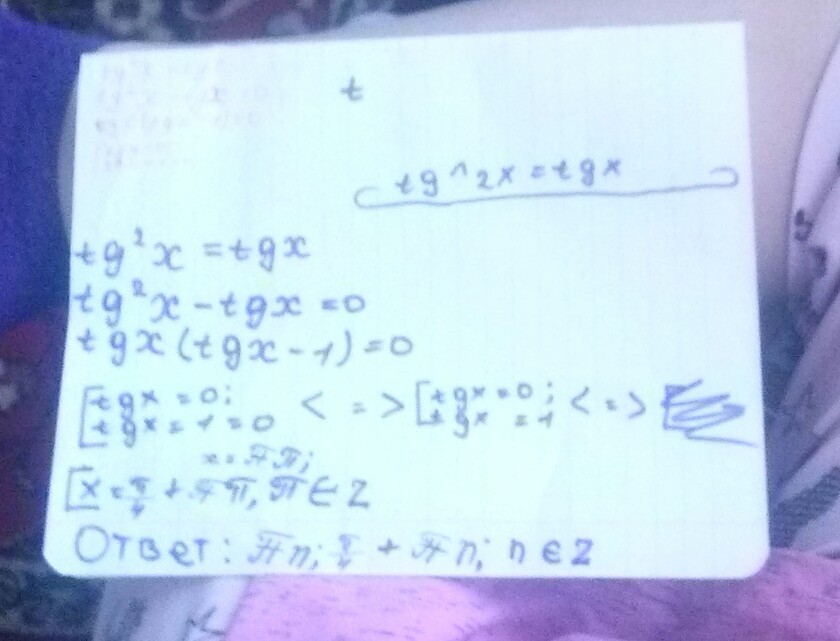 t
tg^2x = tgx
tg²x = tgx
tg²x - tgx = 0
tgx (tgx - 1) = 0
[tgx = 0; <=> [tgx = 0; <=>
tgx - 1 = 0 tgx = 1
x = πn;
[x = π/4 + πn, n ∈ Z
Ответ: πn; π/4 + πn; n ∈ Z